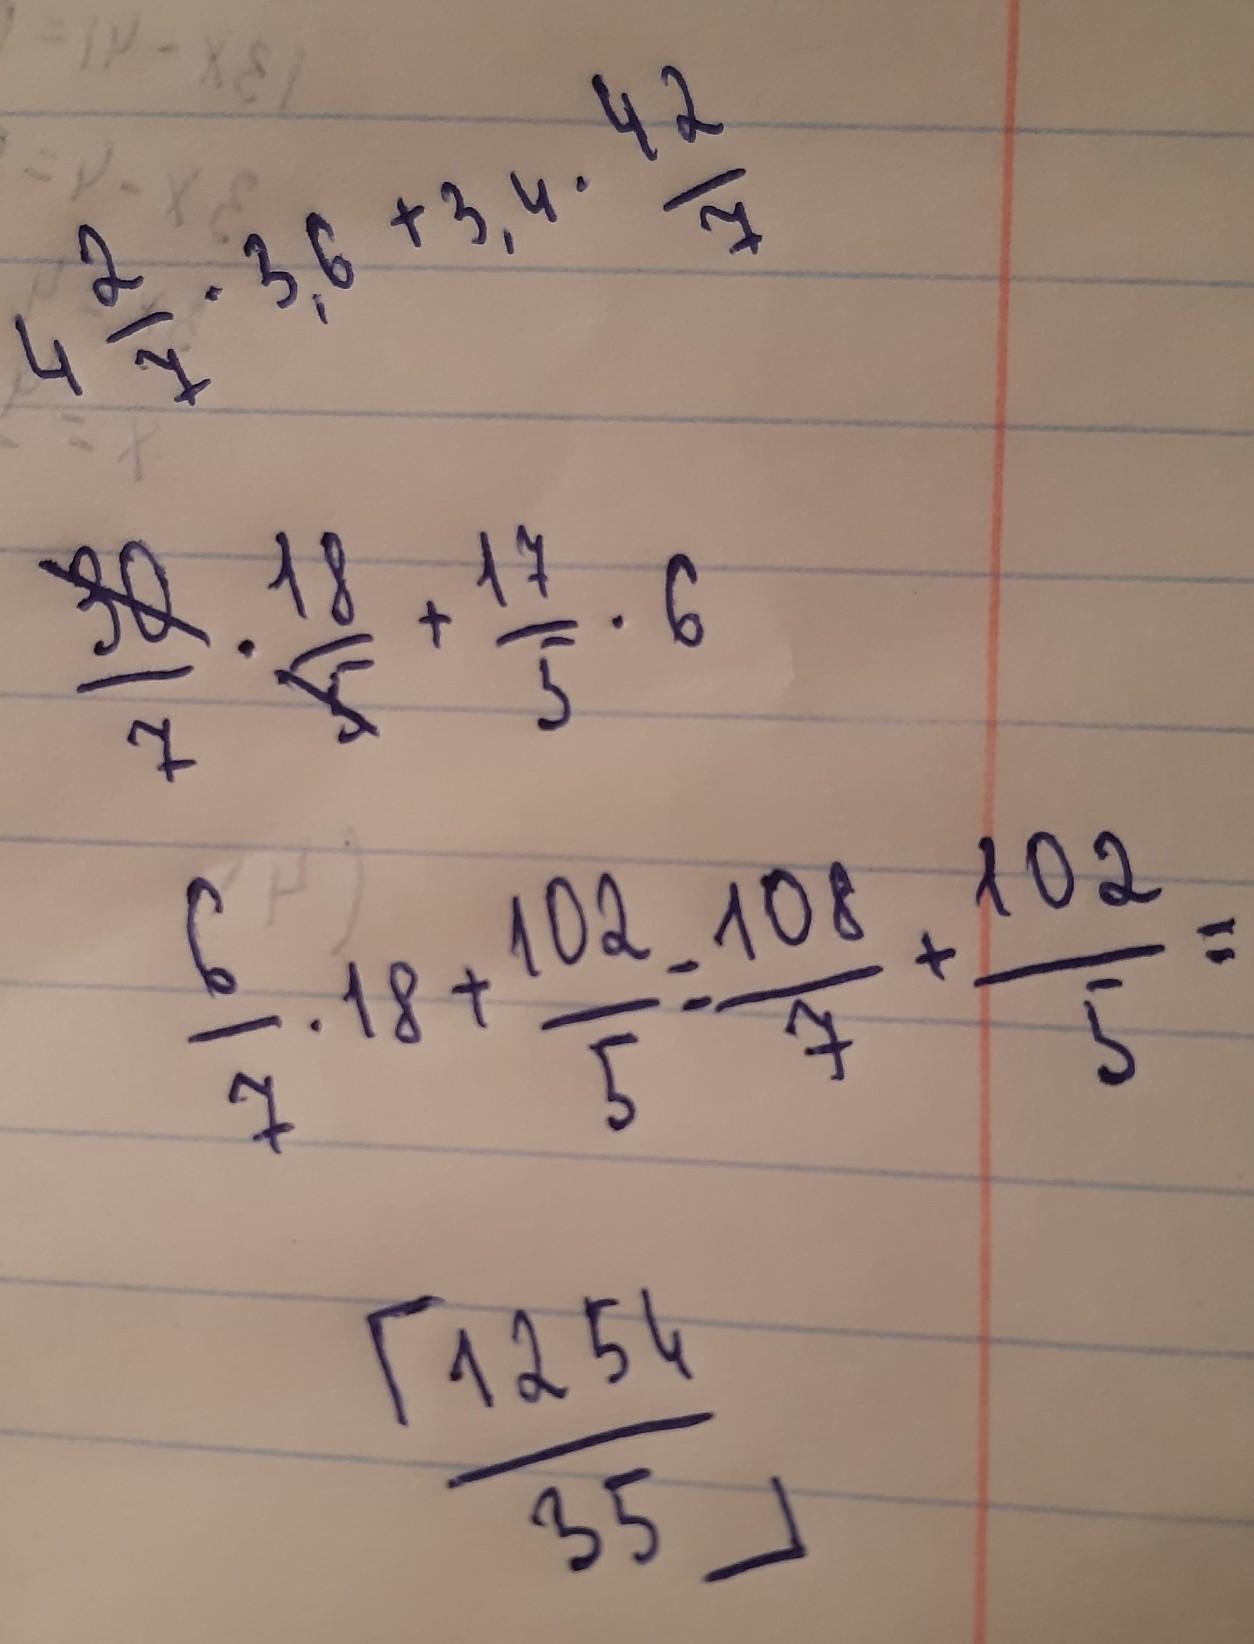 4 2/7 · 3,6 + 3,4 · 42/7
30/7 · 18/5 + 17/5 · 6
6/7 · 18 + 102/5 = 108/7 + 102/5 =
1254/35